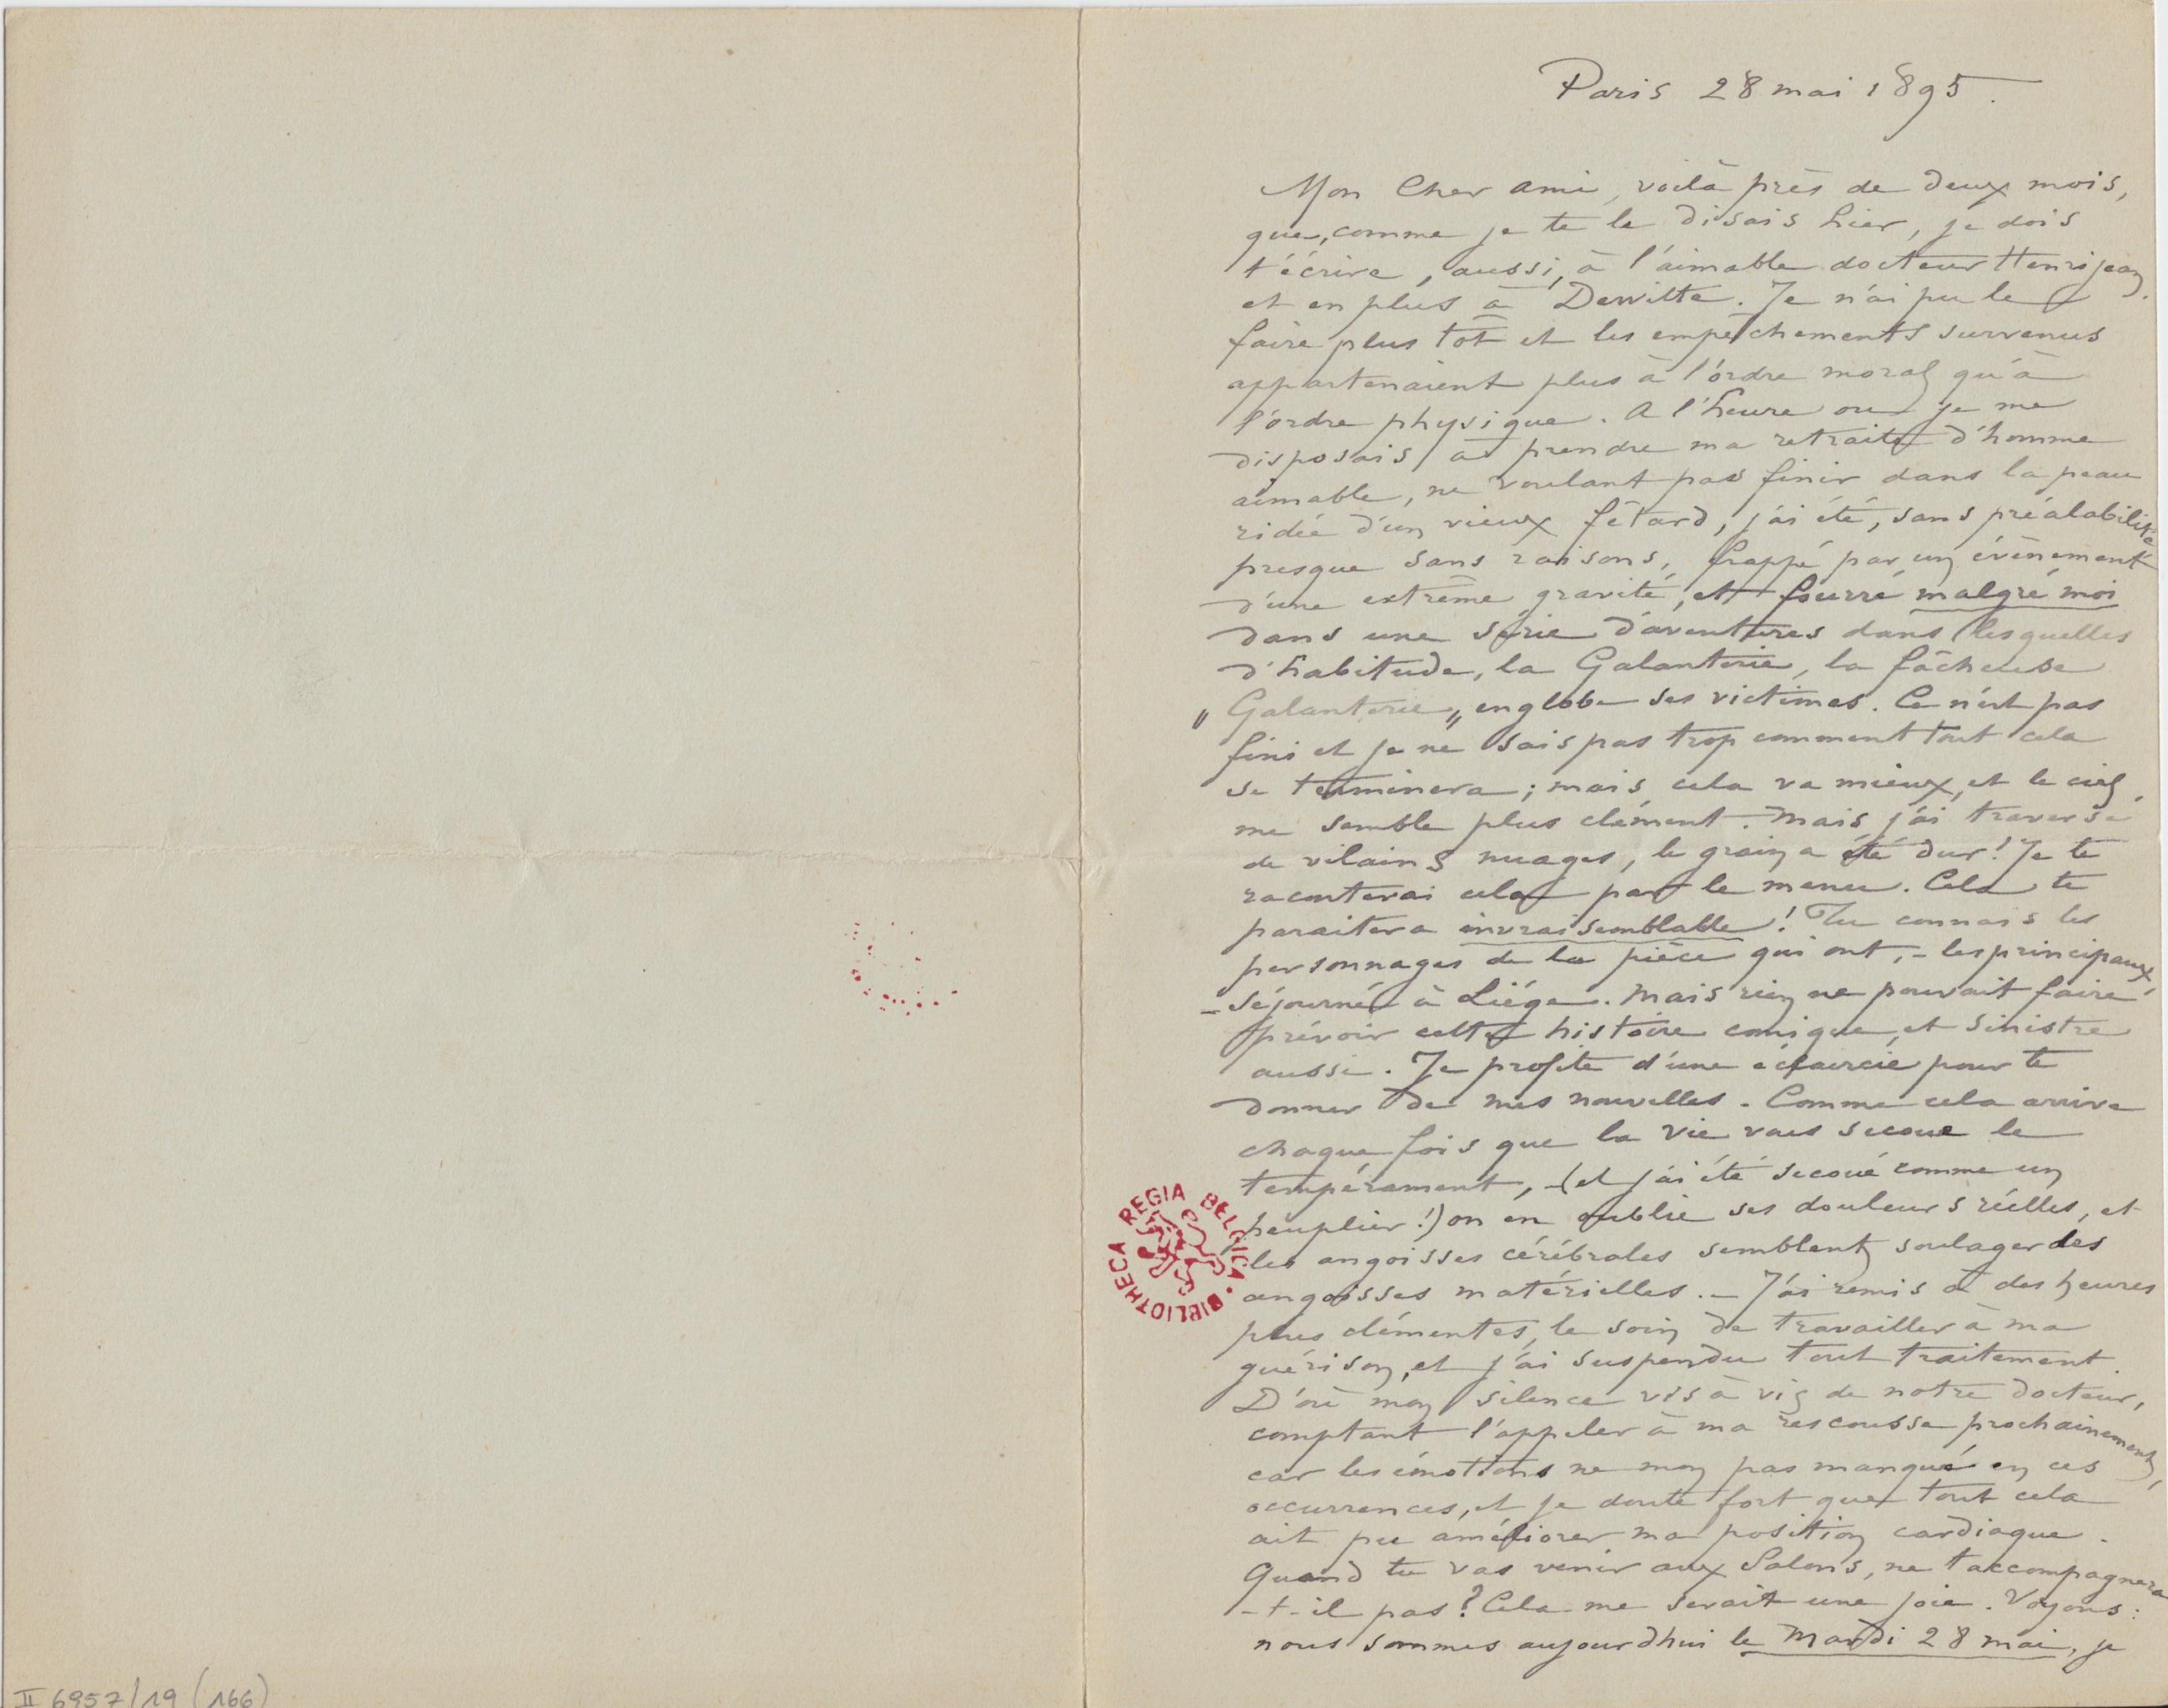 Paris 28 mai 1895.
Mon Cher ami, voilà près de deux mois,
que, comme je te le disais hier, je dois
t'écrire, aussi, à l'aimable docteur Henrijean,
et en plus à Dewitte. Je n'ai pu le
faire plus tôt et les empêchements survenus
appartenaient plus à l'ordre moral qu'à
l'ordre physique. A l'heure ou je me
disposais à prendre ma retraite d'homme
aimable, ne voulant pas finir dans la peau
ridée d'un vieux fêtard, j'ai été, sans préalabilité
presque sans raisons, frappé par un évènement
d'une extrême gravité, et fourré malgré moi
dans une série d'aventures dans lesquelles
d'habitude, la Galanterie, la fâcheuse
„Galanterie„ englobe ses victimes. Ce n'est pas
fini et je ne sais pas trop comment tout cela
se terminera ; mais, cela va mieux, et le ciel
me semble plus clément. Mais j'ai traversé
de vilains nuages, le grain a été dur ! Je te
raconterai cela par le menu. Cela te
paraitera invraisemblable ! Tu connais les
personnages de la pièce qui ont, - les principaux,
- séjourné à Liége. Mais rien ne pouvait faire
prévoir cette histoire comique, et sinistre
aussi. Je profite d'une éclaircie pour te
donner de mes nouvelles. Comme cela arrive
chaque fois que la vie vous secoue le
tempérament, - (et j'ai été secoué comme un
peuplier !) on en oublie ses douleurs réelles, et
les angoisses cérébrales semblent soulager des
angoisses matérielles. - J'ai remis à des heures
plus clémentes, le soin de travailler à ma
guérison, et j'ai suspendu tout traitement.
D'où mon silence vis à vis de notre docteur,
comptant l'appeler à ma rescousse prochainement,
car les émotions ne mon pas manqué en ces
occurrences, et je doute fort que tout cela
ait pu améliorer ma position cardiaque.
Quand tu vas venir aux Salons, ne t'accompagnera
-t-il pas ? Cela me serait une joie. Voyons :
nous sommes aujourdhui le Mardi 28 mai, je
BIBLIOTHECA REGIA BELGICA
II 6957/19 (166)